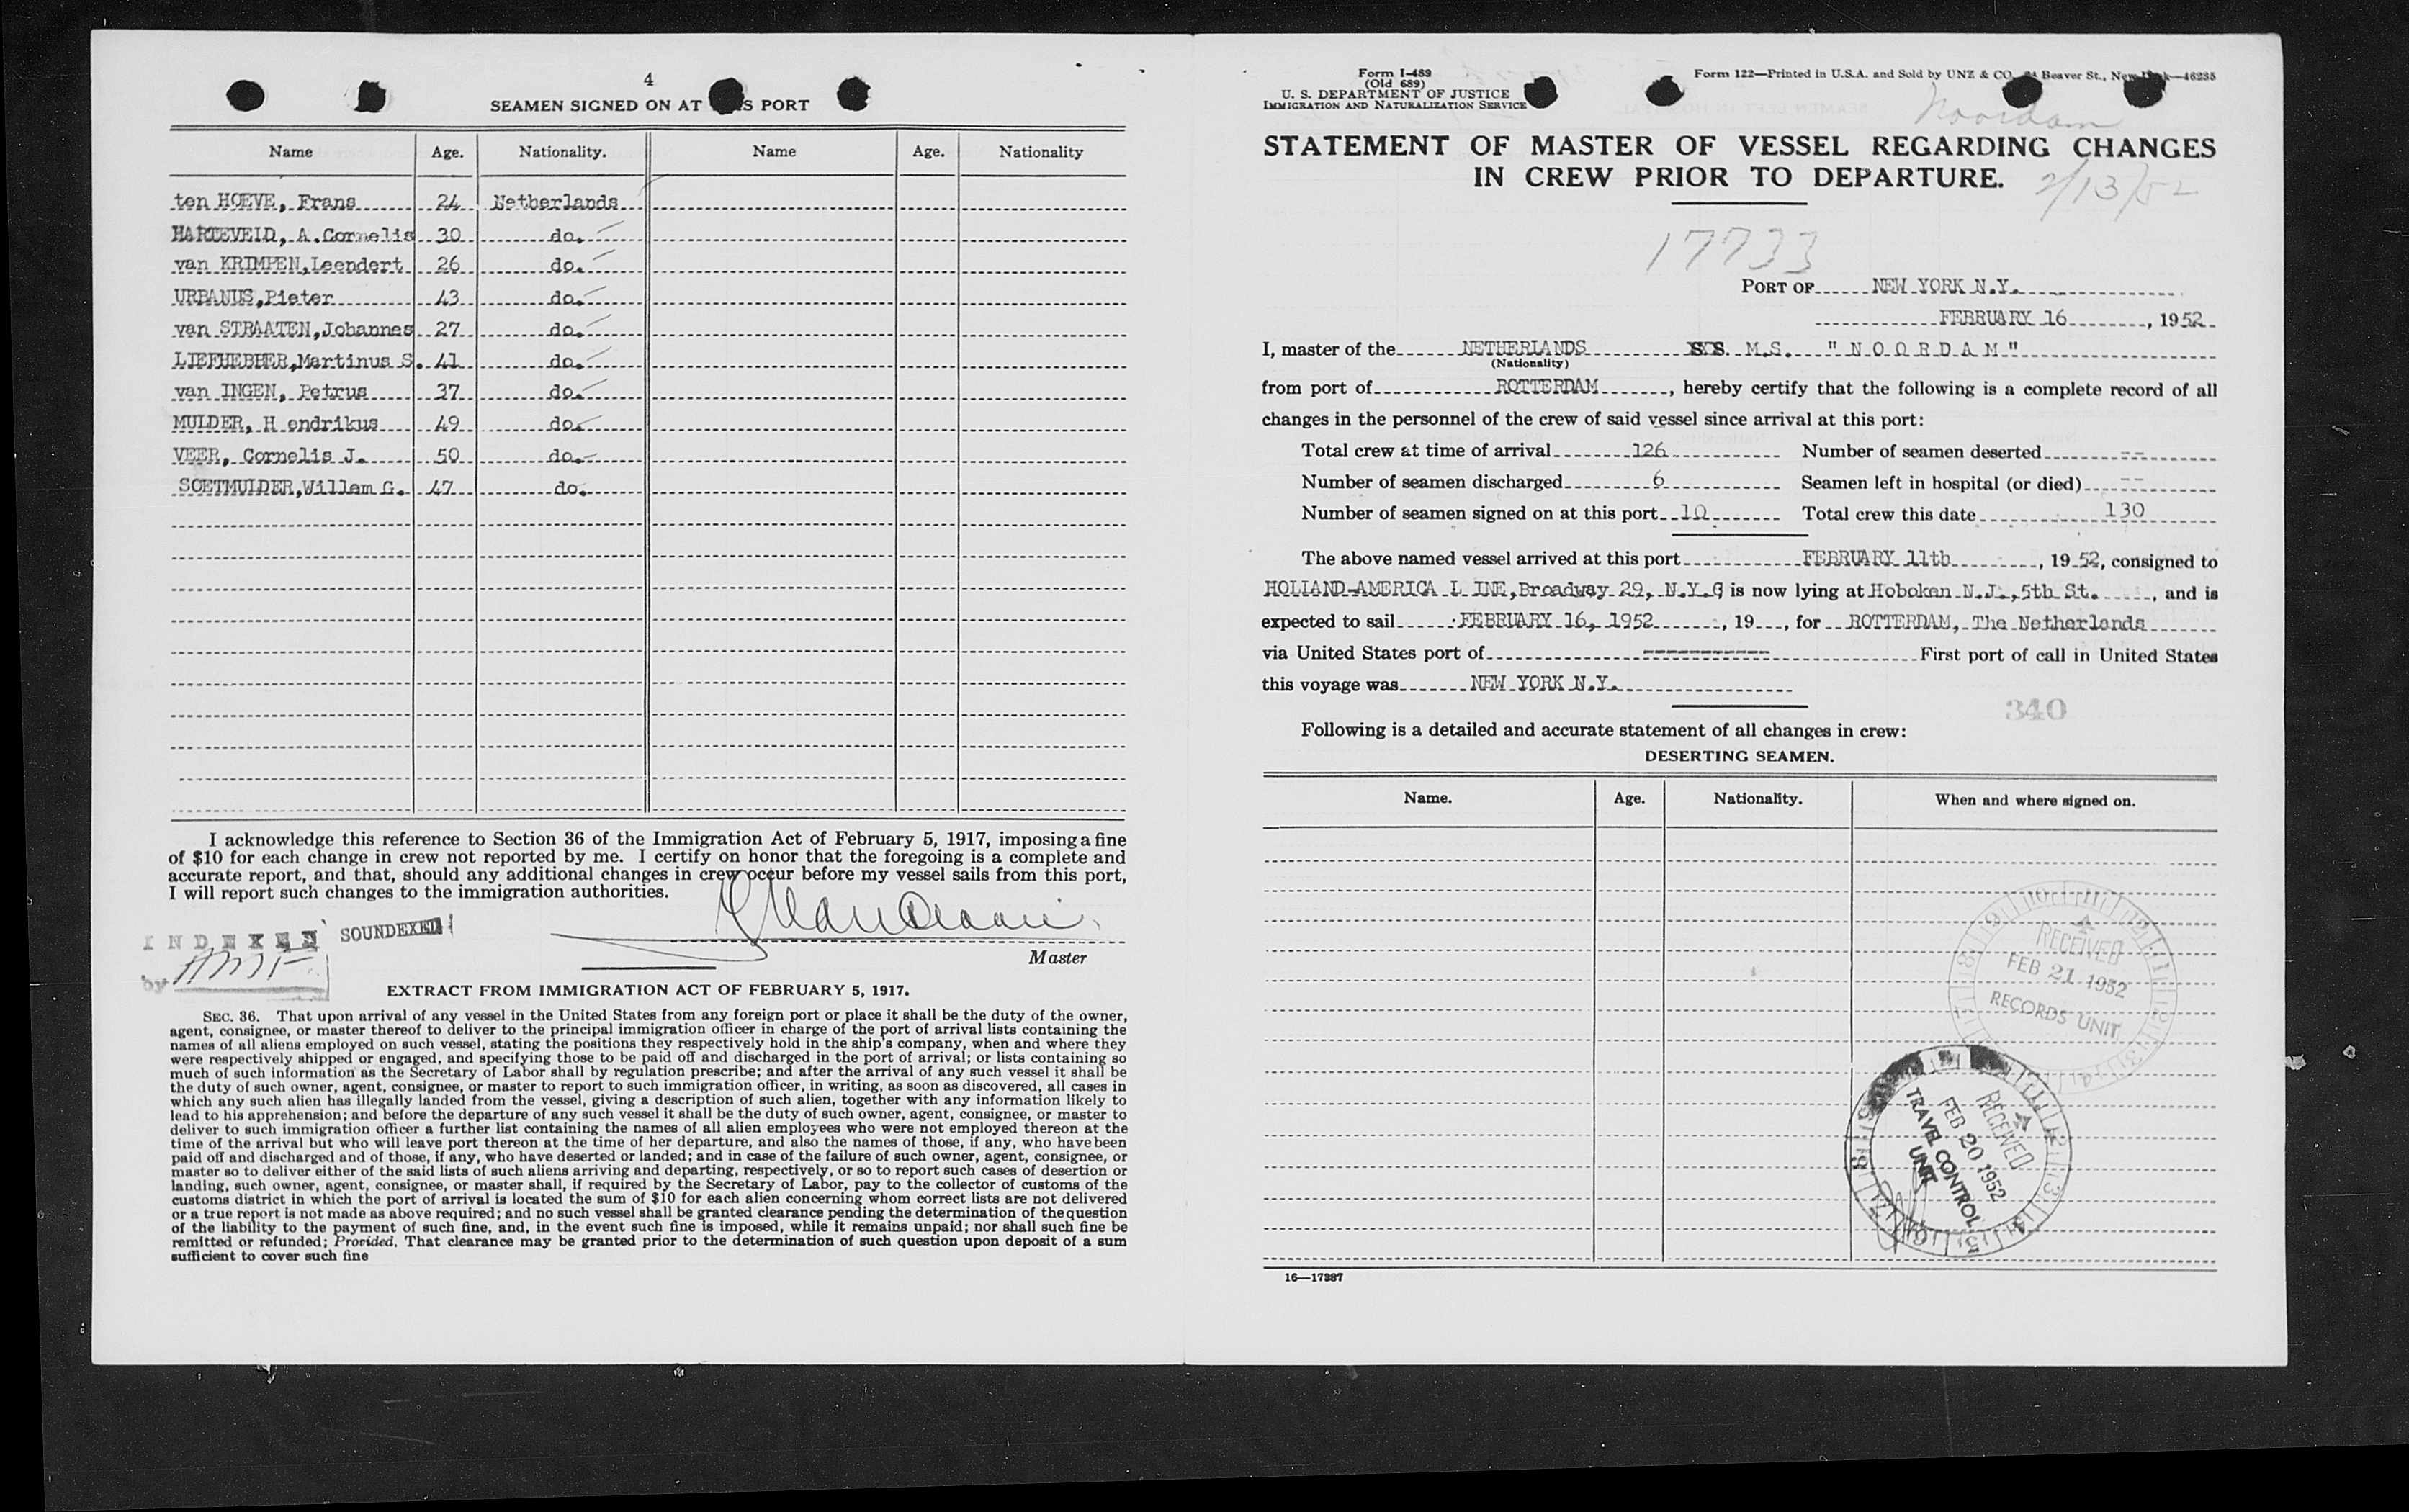 4
SEAMEN SIGNED ON AT S PORT
Name Age. Nationality. Name Age. Nationality
ten HOEVE, Frans 24 Netherlands
HARTEVELD, A.Cornelis 30 do.
van KRIMPEN,Leendert 26 do.
URBANUS,Pieter 43 do.
van STRAATEN,Johannes 27 do.
LIEFHEBBER,Martinus S. 41 do.
van INGEN, Petrus 37 do.
MULDER, H endrikus 49 do.
VEER, Cornelis J. 50 do.
SOETMULDER,Willem G. 47 do.
I acknowledge this reference to Section 36 of the Immigration Act of February 5, 1917, imposing a fine
of $10 for each change in crew not reported by me. I certify on honor that the foregoing is a complete and
accurate report, and that, should any additional changes in crew occur before my vessel sails from this port,
I will report such changes to the immigration authorities.
INDEXED SOUNDEXED
by
Master
EXTRACT FROM IMMIGRATION ACT OF FEBRUARY 5, 1917.
SEC. 36. That upon arrival of any vessel in the United States from any foreign port or place it shall be the duty of the owner,
agent, consignee, or master thereof to deliver to the principal immigration officer in charge of the port of arrival lists containing the
names of all aliens employed on such vessel, stating the positions they respectively hold in the ship's company, when and where they
were respectively shipped or engaged, and specifying those to be paid off and discharged in the port of arrival; or lists containing so
much of such information as the Secretary of Labor shall by regulation prescribe; and after the arrival of any such vessel it shall be
the duty of such owner, agent, consignee, or master to report to such immigration officer, in writing, as soon as discovered, all cases in
which any such alien has illegally landed from the vessel, giving a description of such alien, together with any information likely to
lead to his apprehension; and before the departure of any such vessel it shall be the duty of such owner, agent, consignee, or master to
deliver to such immigration officer a further list containing the names of all alien employees who were not employed thereon at the
time of the arrival but who will leave port thereon at the time of her departure, and also the names of those, if any, who have been
paid off and discharged and of those, if any, who have deserted or landed; and in case of the failure of such owner, agent, consignee, or
master so to deliver either of the said lists of such aliens arriving and departing, respectively, or so to report such cases of desertion or
landing, such owner, agent, consignee, or master shall, if required by the Secretary of Labor, pay to the collector of customs of the
customs district in which the port of arrival is located the sum of $10 for each alien concerning whom correct lists are not delivered
or a true report is not made as above required; and no such vessel shall be granted clearance pending the determination of the question
of the liability to the payment of such fine, and, in the event such fine is imposed, while it remains unpaid; nor shall such fine be
remitted or refunded; Provided, That clearance may be granted prior to the determination of such question upon deposit of a sum
sufficient to cover such fine
Form I-489
(Old 689)
U. S. DEPARTMENT OF JUSTICE
IMMIGRATION AND NATURALIZATION SERVICE
Form 122—Printed in U.S.A. and Sold by UNZ & CO. Beaver St., New —46235
Noordam
STATEMENT OF MASTER OF VESSEL REGARDING CHANGES
IN CREW PRIOR TO DEPARTURE.
2/13/52
17733
PORT OF NEW YORK N.Y.
FEBRUARY 16, 1952
I, master of the NETHERLANDS SS. M.S. "NOORDAM"
(Nationality)
from port of ROTTERDAM, hereby certify that the following is a complete record of all
changes in the personnel of the crew of said vessel since arrival at this port:
Total crew at time of arrival 126 Number of seamen deserted --
Number of seamen discharged 6 Seamen left in hospital (or died) --
Number of seamen signed on at this port 10 Total crew this date 130
The above named vessel arrived at this port FEBRUARY 11th, 1952, consigned to
HOLLAND-AMERICA L INE,Broadway 29, N.Y.C is now lying at Hoboken N.J.,5th St., and is
expected to sail FEBRUARY 16, 1952, 19, for ROTTERDAM, The Netherlands
via United States port of ----------- First port of call in United States
this voyage was NEW YORK N.Y.
340
Following is a detailed and accurate statement of all changes in crew:
DESERTING SEAMEN.
Name. Age. Nationality. When and where signed on.
RECEIVED
FEB 21 1952
RECORDS UNIT
RECEIVED
FEB 20 1952
TRAVEL CONTROL
UNIT
16—17387